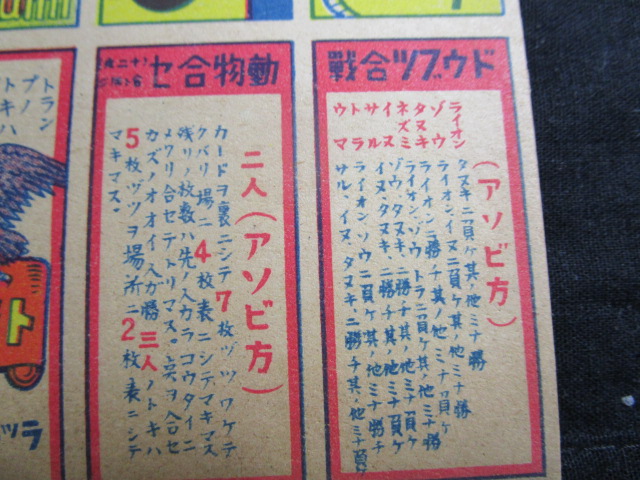 ドウブツ合戰
ライオン
ゾウ
タヌキ
ネズミ
イヌ
サル
トラ
ウマ
(アソビ方)
タヌキニ負ケ其ノ他ミナ勝
ライオン、イヌニ負ケ其ノ他ミナ勝
ライオンニ勝チ其ノ他ミナ負ケ
ライオン、ゾウ、トラニ負ケ其ノ他ミナ勝
ゾウ、タヌキ、ニ勝チ其ノ他ミナ負ケ
イヌ、タヌキ、ニ勝チ其ノ他ミナ負ケ
ライオン、ゾウ、ニ負ケ其ノ他ミナ勝チ
サル、イヌ、タヌキ、ニ勝チ其ノ他ミナ負ケ
動物合セ
二人(アソビ方)
カードヲ裏ニシテ7枚ヅツワケテ
クバリ場ニ4枚表ニシテマキマス
残リノ枚数ハ先ノ人カラコウタイニ
メクリ合セテトリマス。ヲ合セ
カズノオオイ人ガ勝 三人ノトキハ
5枚ヅツヲ場所ニ2枚表ニシテ
マキマス。
トラン
プノ
トキハ
ト
ラッ